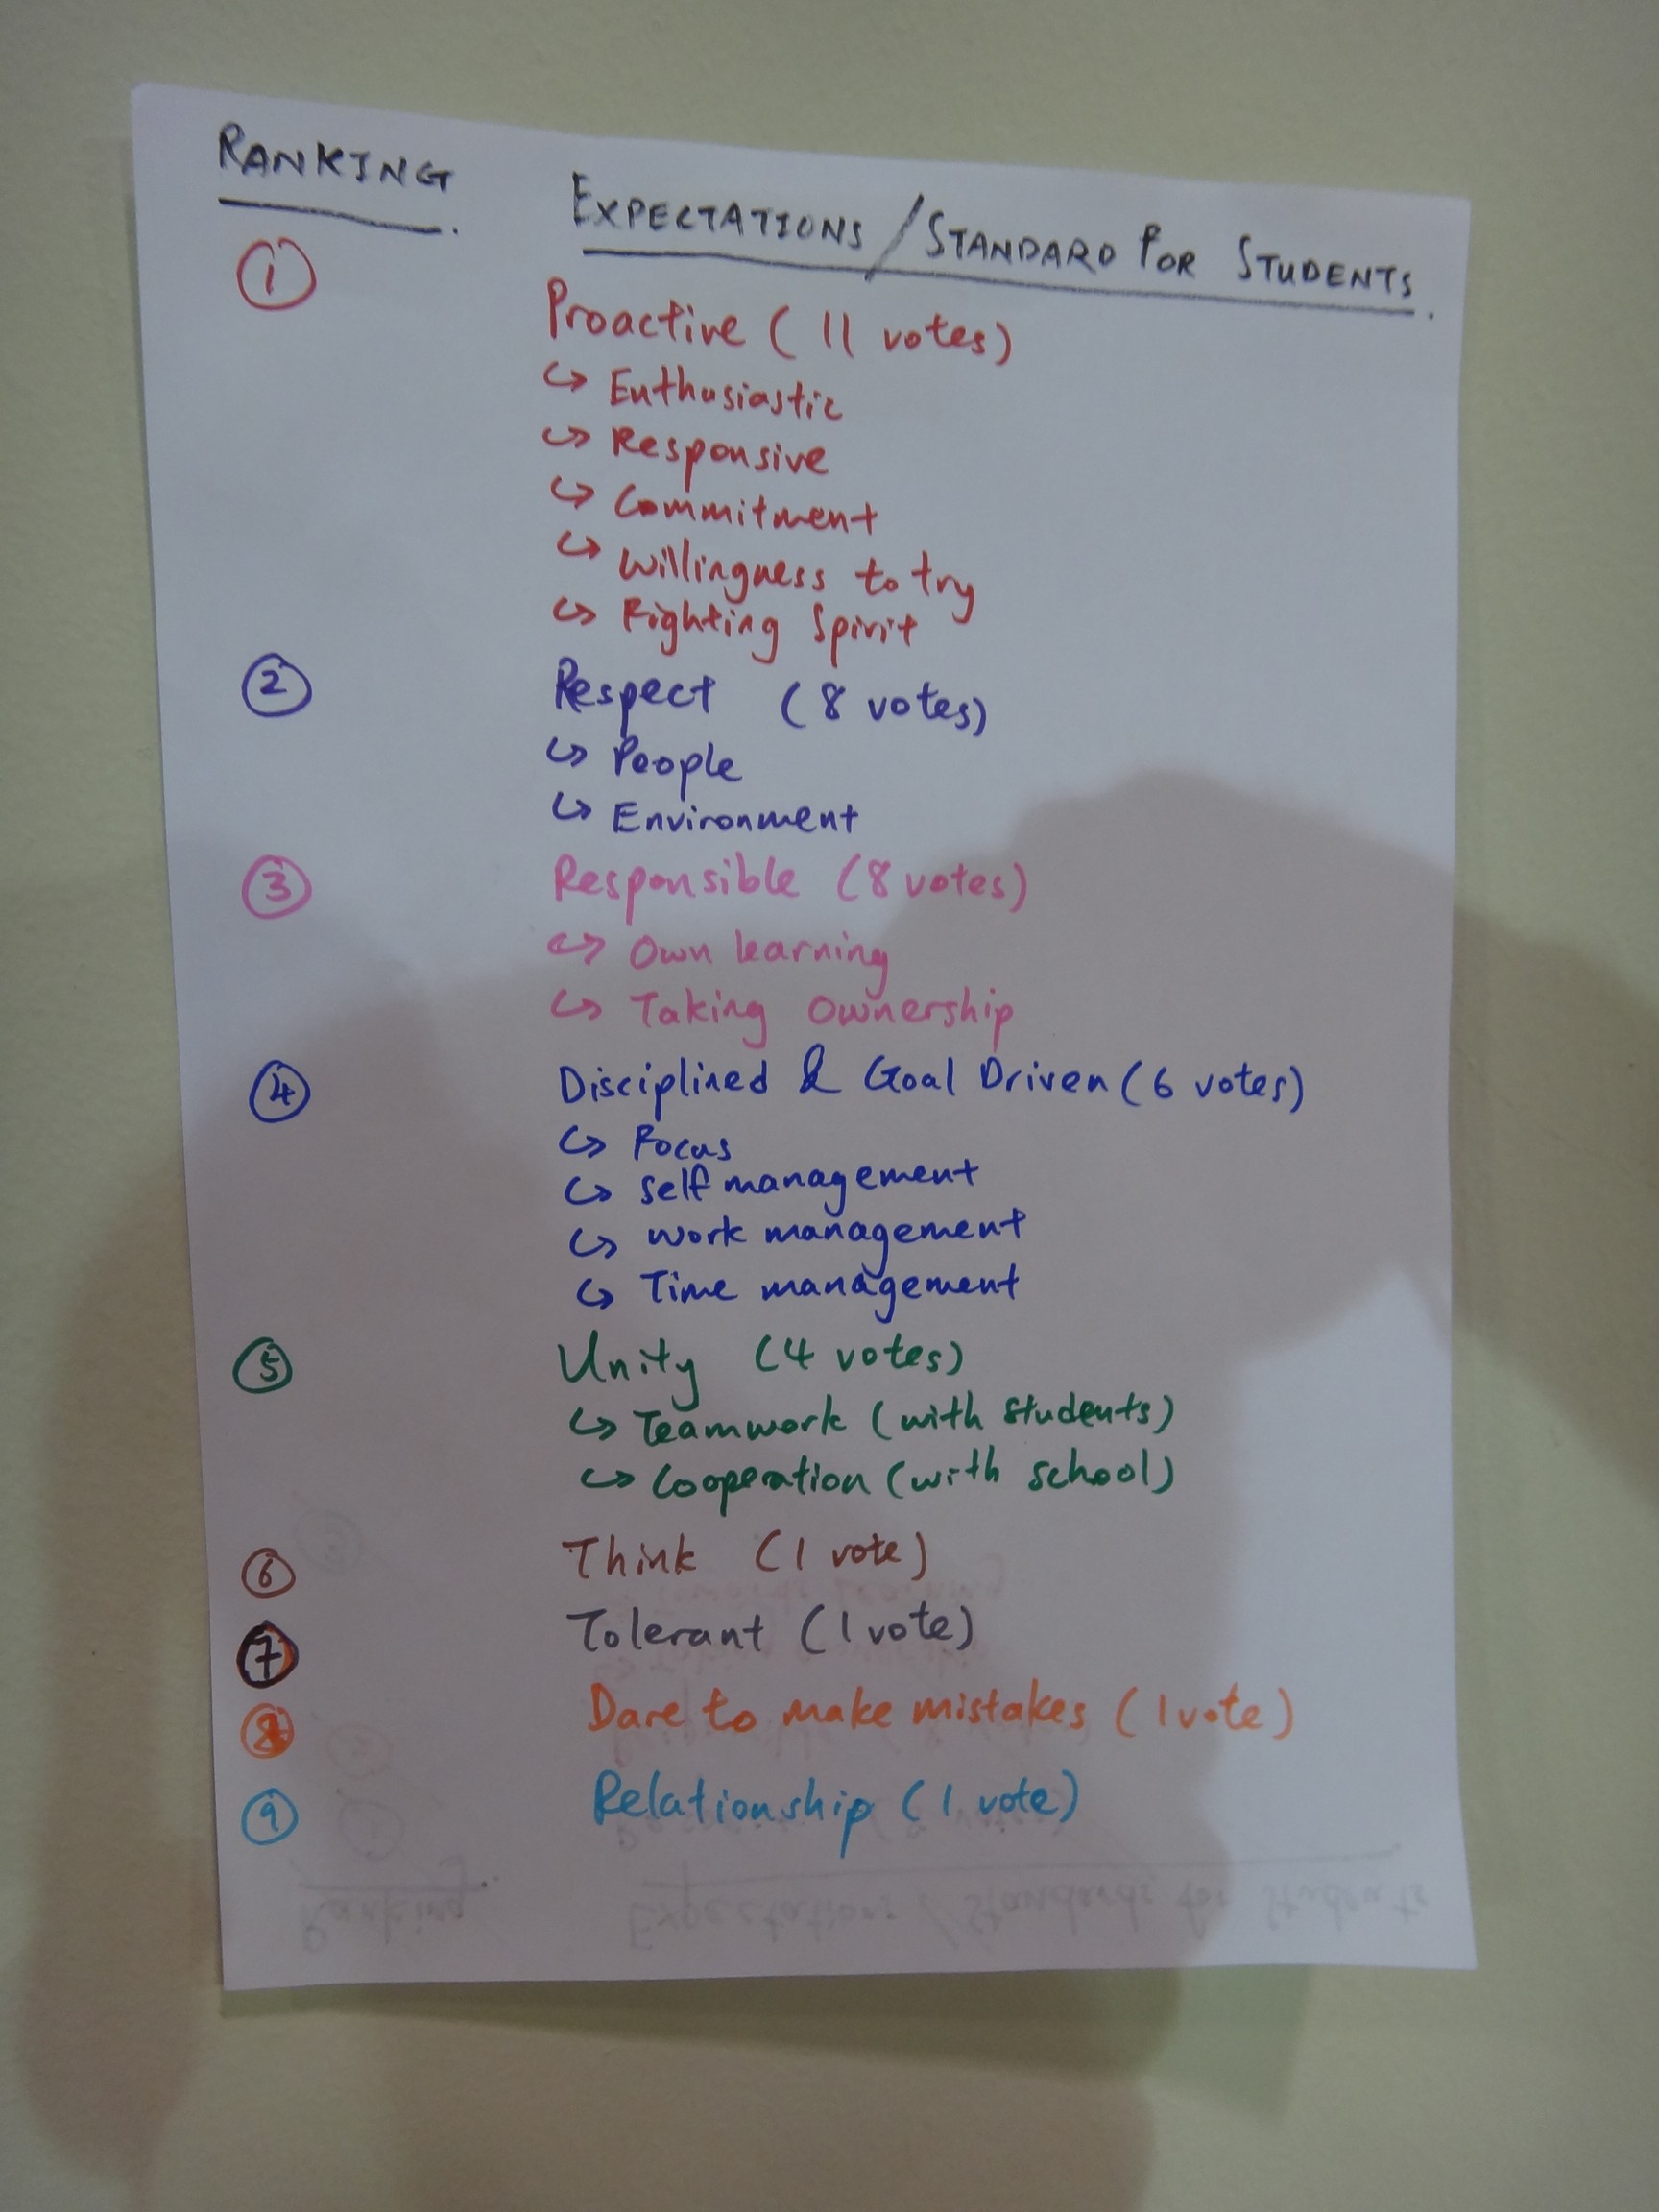 RANKING.
EXPECTATIONS / STANDARD FOR STUDENTS.
1
Proactive (11 votes)
↪ Enthusiastic
↪ Responsive
↪ Commitment
↪ Willingness to try
↪ Fighting Spirit
2
Respect (8 votes)
↪ People
↪ Environment
3
Responsible (8 votes)
↪ Own learning
↪ Taking Ownership
4
Disciplined & Goal Driven (6 votes)
↪ Focus
↪ Self management
↪ Work management
↪ Time management
5
Unity (4 votes)
↪ Teamwork (with students)
↪ Cooperation (with school)
6
Think (1 vote)
7
Tolerant (1 vote)
8
Dare to make mistakes (1 vote)
9
Relationship (1 vote)
Ranking.
Expectations / Standards for Students